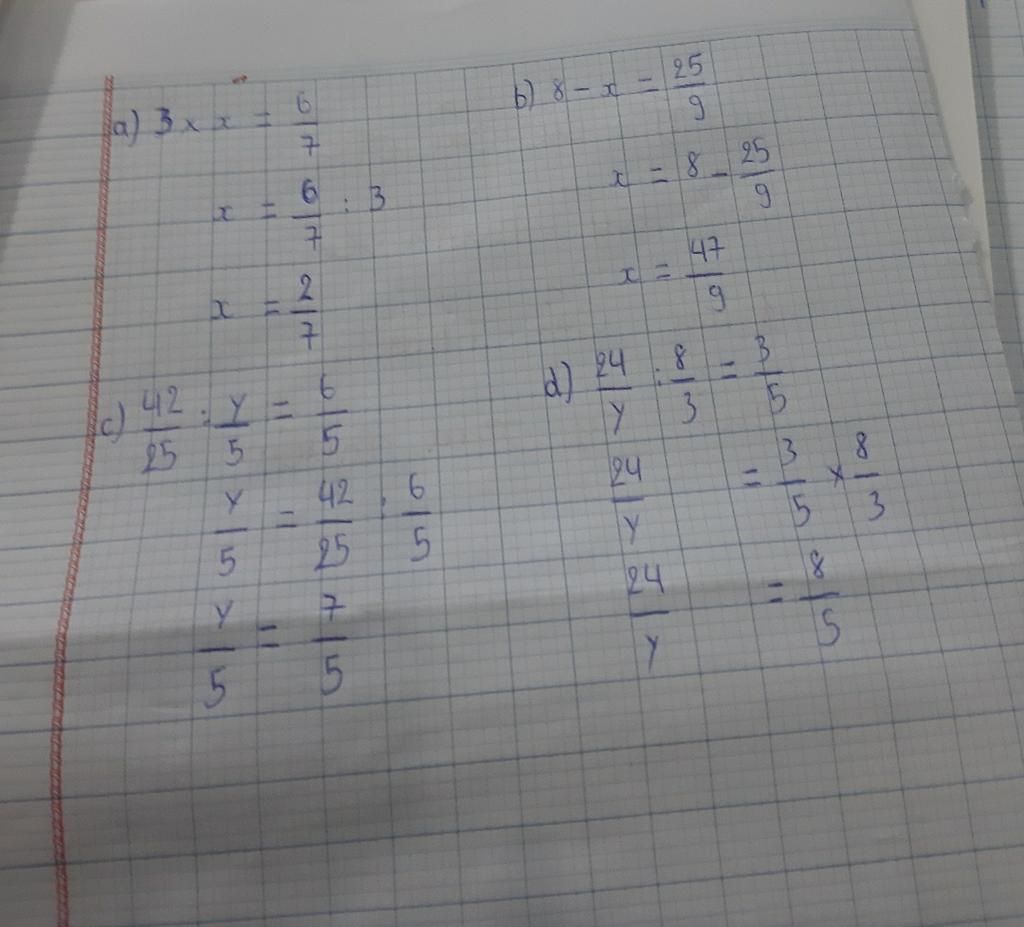 a) 3 x x = 6/7
x = 6/7 : 3
x = 2/7
b) 8 - x = 25/9
x = 8 - 25/9
x = 47/9
c) 42/25 : y/5 = 6/5
y/5 = 42/25 : 6/5
y/5 = 7/5
d) 24/y : 8/3 = 3/5
24/y = 3/5 x 8/3
24/y = 8/5